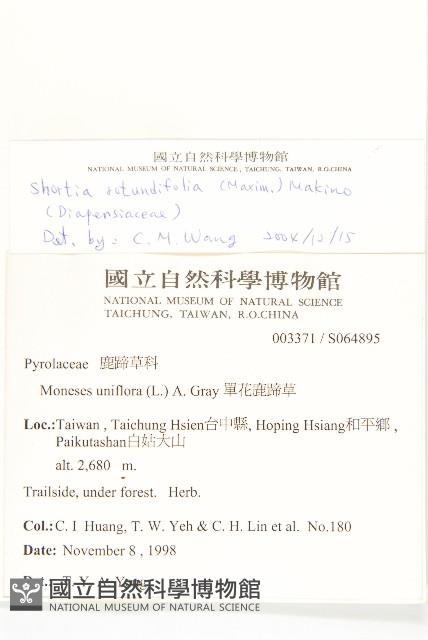 國立自然科學博物館
NATIONAL MUSEUM OF NATURAL SCIENCE, TAICHUNG, TAIWAN, R.O.CHINA
Shortia rotundifolia (Maxim.) Makino
(Diapensiaceae)
Det. by: C. M. Wang 2004/12/15
國立自然科學博物館
NATIONAL MUSEUM OF NATURAL SCIENCE
TAICHUNG, TAIWAN, R.O.CHINA
003371 / S064895
Pyrolaceae 鹿蹄草科
Moneses uniflora (L.) A. Gray 單花鹿蹄草
Loc.:Taiwan , Taichung Hsien台中縣, Hoping Hsiang和平鄉 ,
Paikutashan白姑大山
alt. 2,680 m.
Trailside, under forest. Herb.
Col.:C. I Huang, T. W. Yeh & C. H. Lin et al. No.180
Date: November 8 , 1998
國立自然科學博物館
NATIONAL MUSEUM OF NATURAL SCIENCE